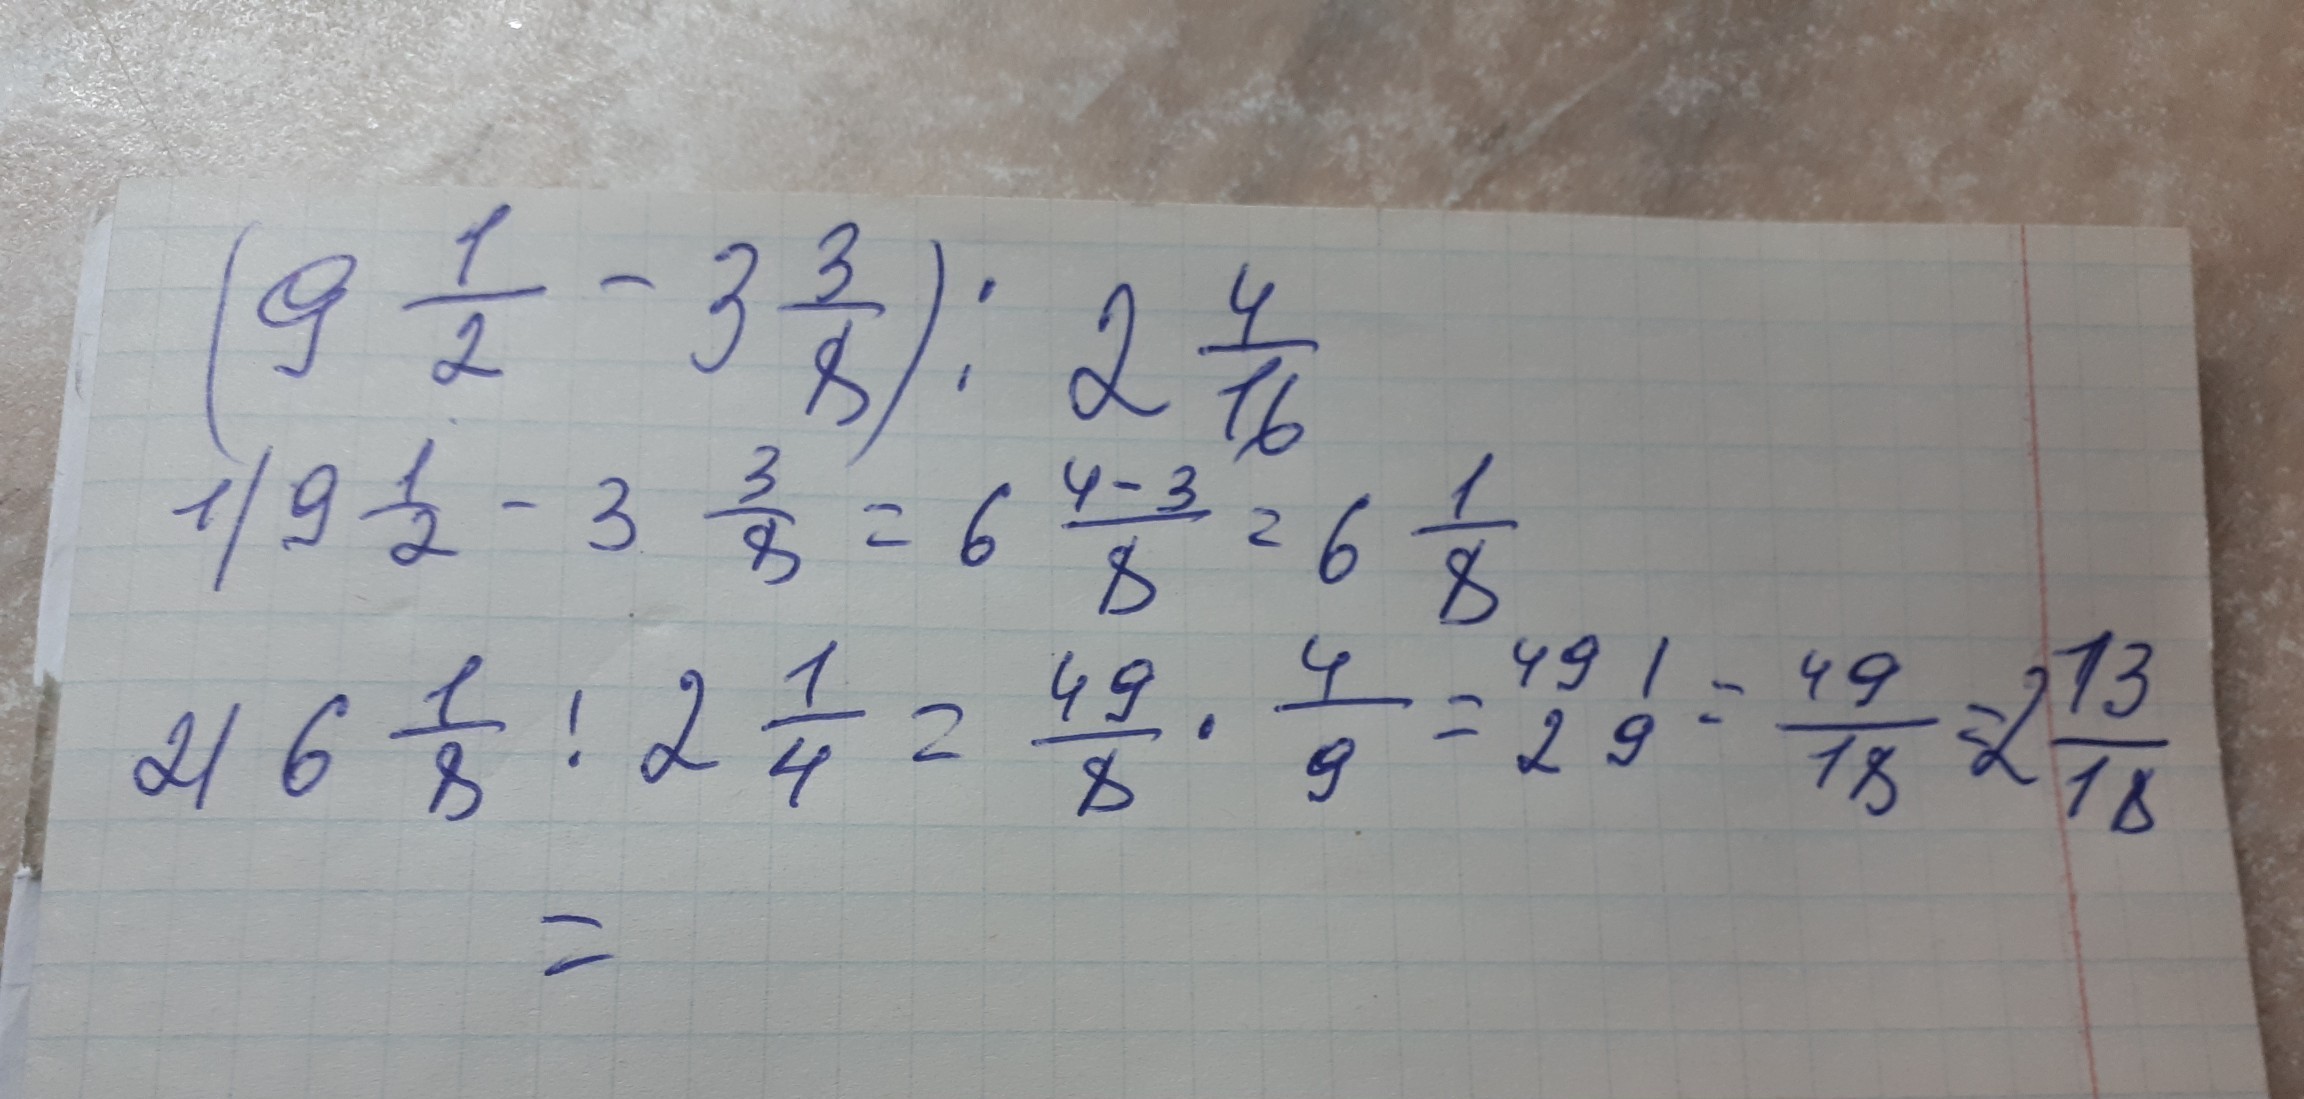 (9 1/2 - 3 3/8) : 2 4/16
1) 9 1/2 - 3 3/8 = 6 4-3/8 = 6 1/8
2) 6 1/8 : 2 1/4 = 49/8 · 4/9 = 49 1 / 2 9 = 49/18 = 2 13/18
=